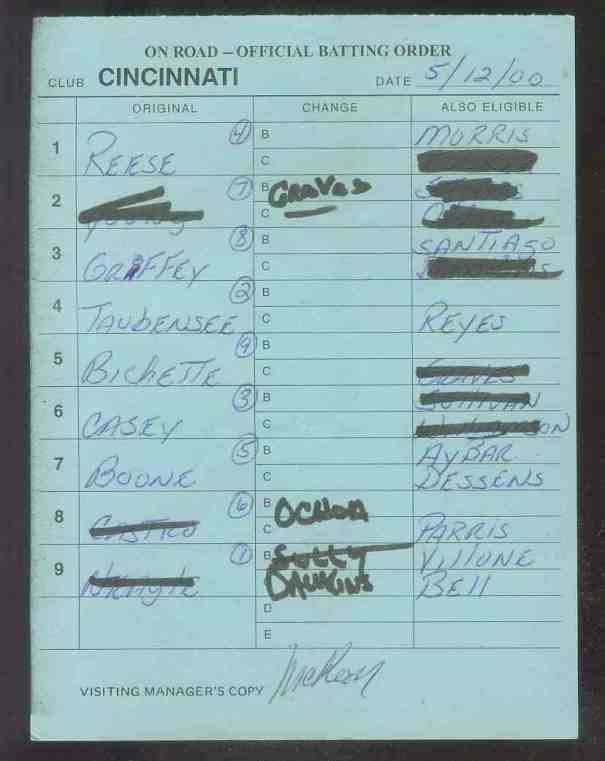 ON ROAD – OFFICIAL BATTING ORDER
CLUB CINCINNATI DATE 5/12/00
ORIGINAL CHANGE ALSO ELIGIBLE
1 REESE 4 B MORRIS
C
2 7 B GRAVES
C
3 GRIFFEY 8 B SANTIAGO
C
4 TAUBENSEE 2 B
C REYES
5 BICHETTE 9 B
C GRAVES
6 CASEY 3 B SULLIVAN
C
7 BOONE 5 B AYBAR
C DESSENS
8 CASTRO 6 B OCHOA
C PARRIS
9 1 B SULLY VILLONE
C DAWKINS BELL
D
E
VISITING MANAGER'S COPY McKeon